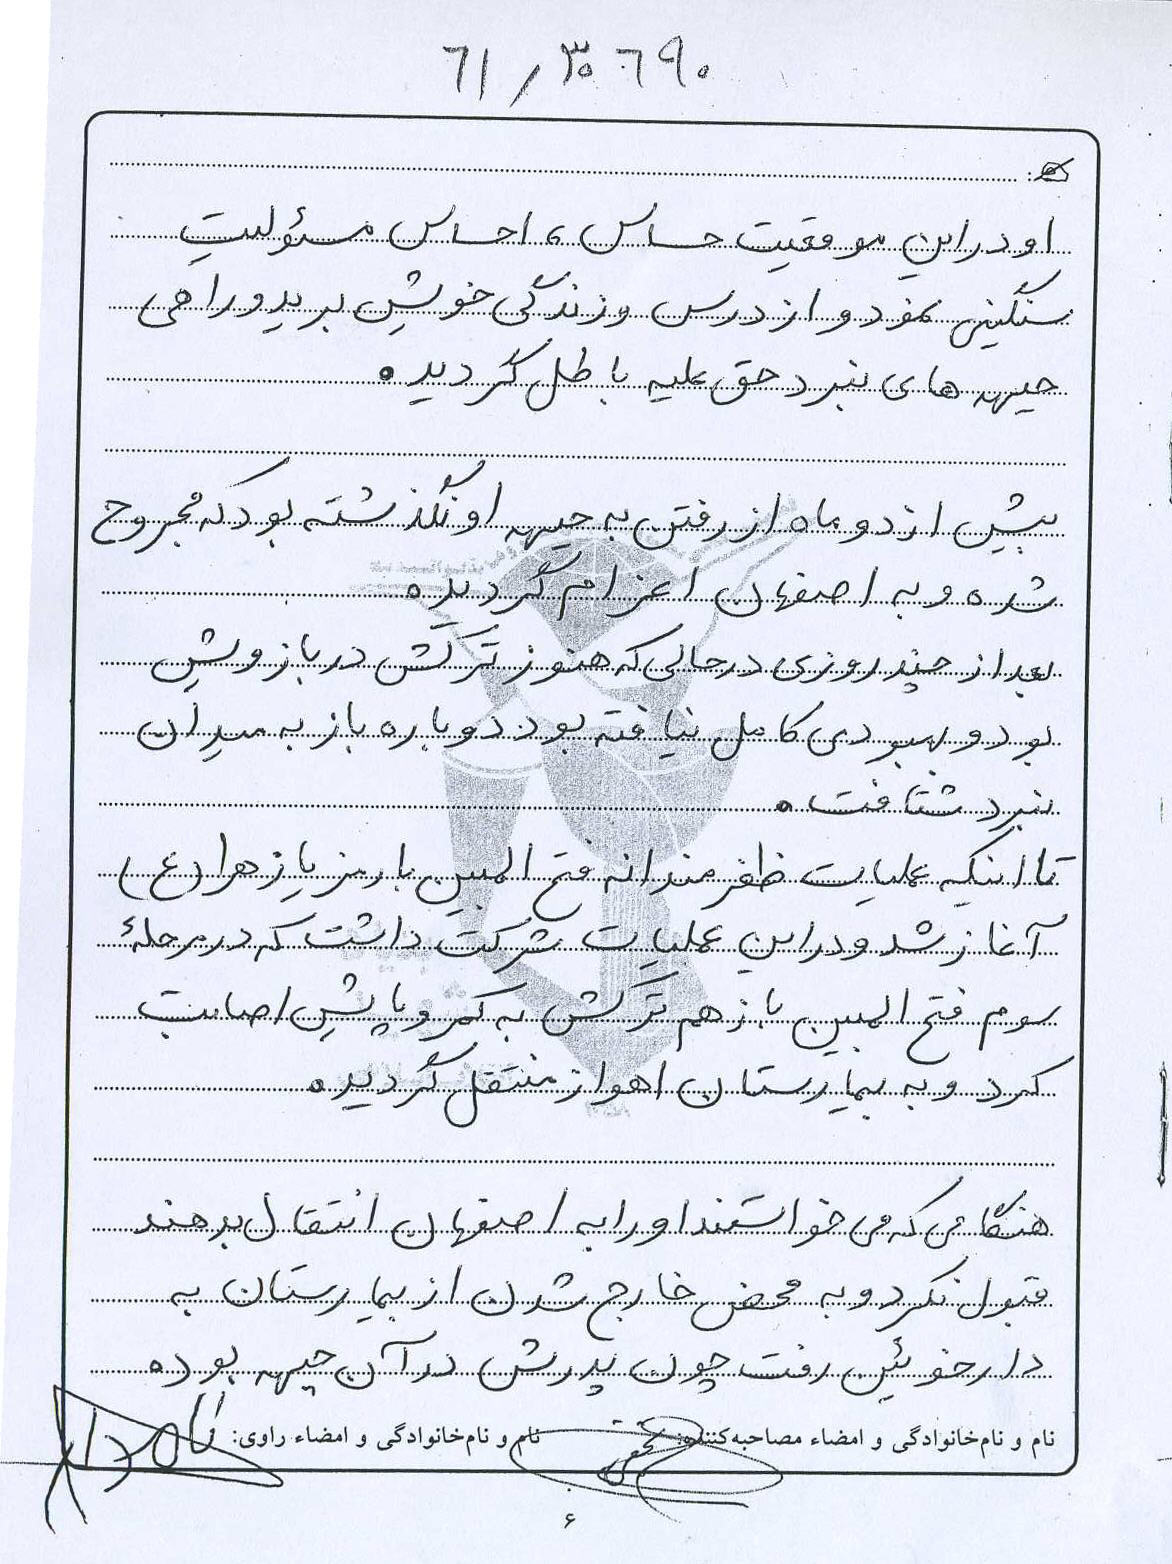 ٦١/٣٠٦٩٠
کد:
او در این موقعیت حساس، احساس مسئولیت
سنگینی نمود و از درس و زندگی خویش برید و راهی
جبهه های نبرد حق علیه باطل گردید.
بیش از دو ماه از رفتن به جبهه او نگذشته بود که مجروح
شده و به اصفهان اعزام گردید.
بعد از چند روزی در حالی که هنوز ترکش در بازویش
بود و بهبودی کامل نیافته بود دوباره باز به میدان
نبرد شتافت.
تا اینکه عملیات ظفرمندانه فتح المبین با رمز یا زهرا (ع)
آغاز شد و در این عملیات شرکت داشت که در مرحلهٔ
سوم فتح المبین باز هم ترکش به کمر و پایش اصابت
کرد و به بیمارستان اهواز منتقل گردید.
هنگامی که می خواستند او را به اصفهان انتقال بدهند
قبول نکرد و به محض خارج شدن از بیمارستان به
دارخوئین رفت چون پدرش در آن جبهه بوده
نام و نام خانوادگی و امضاء مصاحبه کننده: نام و نام خانوادگی و امضاء راوی:
۶